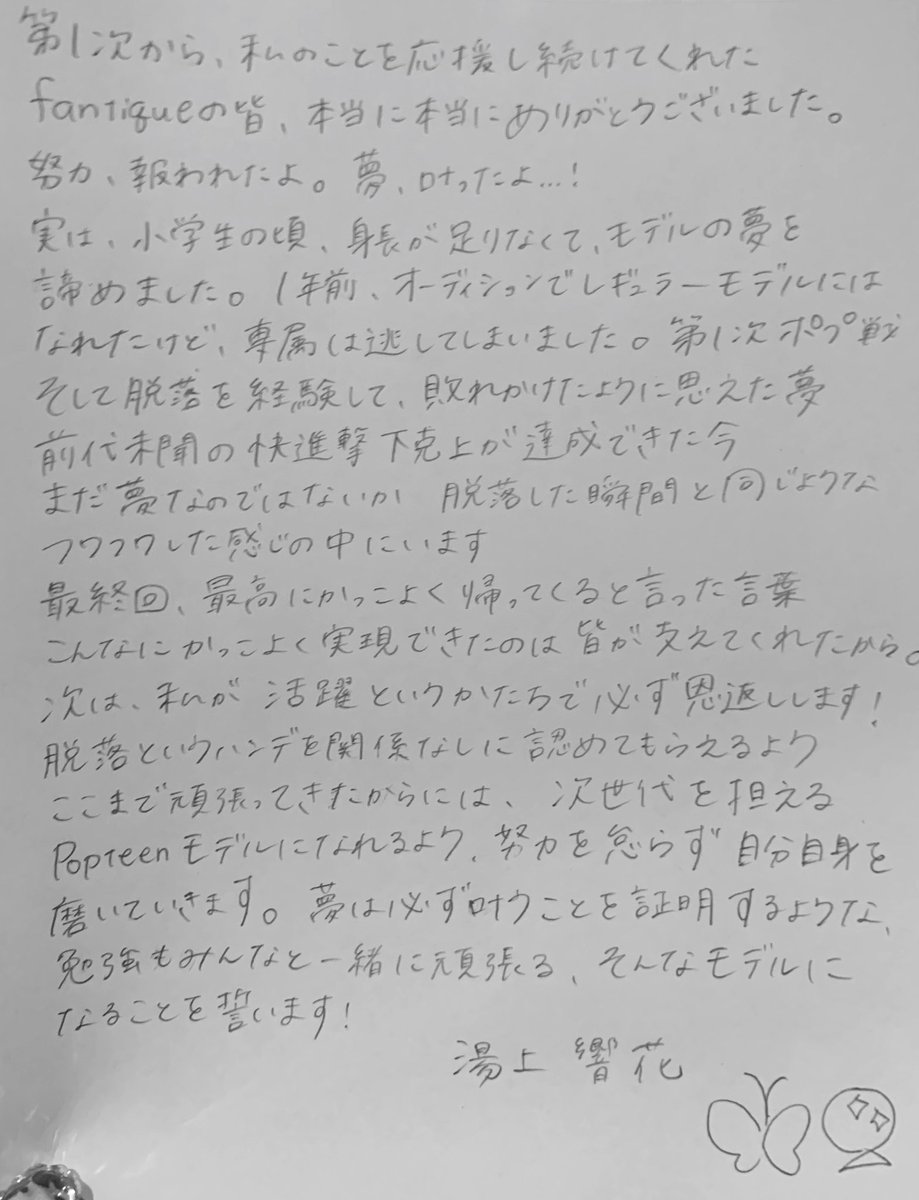 第1次から、私のことを応援し続けてくれた
fantiqueの皆、本当に本当にありがとうございました。
努力、報われたよ。夢、叶ったよ…！
実は、小学生の頃、身長が足りなくて、モデルの夢を
諦めました。1年前、オーディションでレギュラーモデルには
なれたけど、専属は逃してしまいました。第1次ポプ戦
そして脱落を経験して、敗れかけたように思えた夢
前代未聞の快進撃下克上が達成できた今
まだ夢なのではないか 脱落した瞬間と同じような
フワフワした感じの中にいます
最終回、最高にかっこよく帰ってくると言った言葉
こんなにかっこよく実現できたのは皆が支えてくれたから。
次は、私が 活躍というかたちで必ず恩返しします！
脱落というハンデを関係なしに認めてもらえるよう
ここまで頑張ってきたからには、次世代を担える
Popteenモデルになれるよう、努力を怠らず自分自身を
磨いていきます。夢は必ず叶うことを証明するような、
勉強もみんなと一緒に頑張る、そんなモデルに
なることを誓います！
湯上 響花